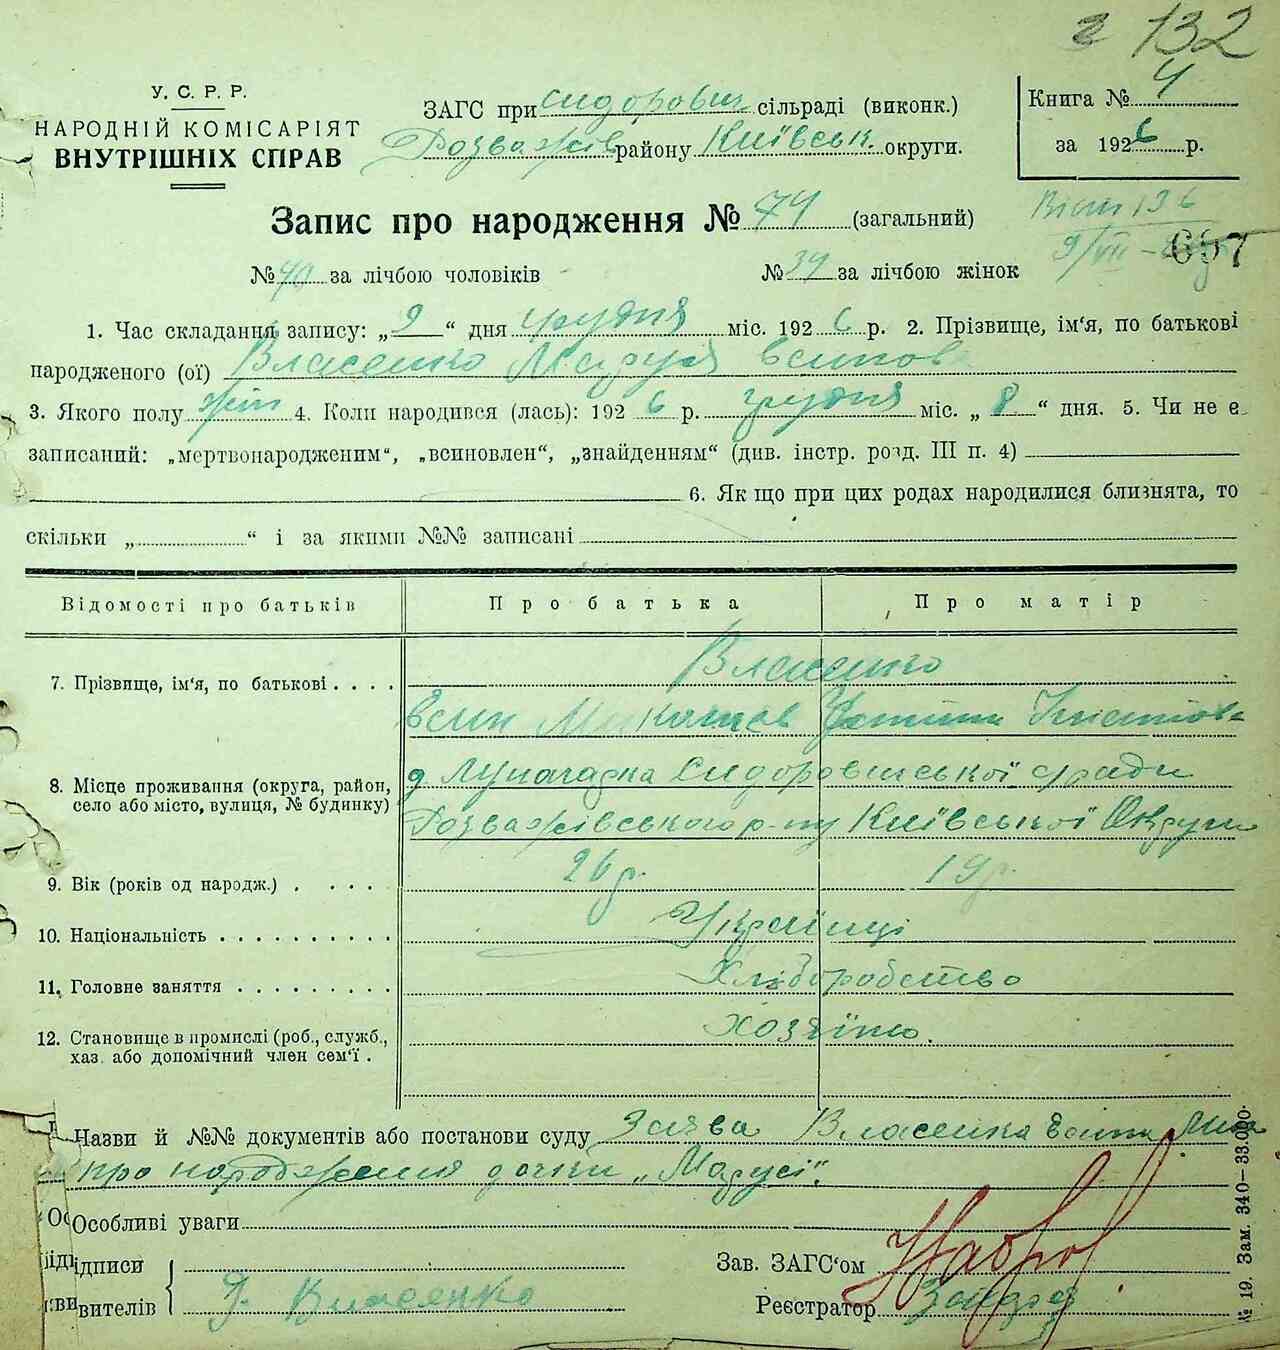 132
У. С. Р. Р.
НАРОДНІЙ КОМІСАРІЯТ
ВНУТРІШНІХ СПРАВ
ЗАГС при Сидорович сільраді (виконк.)
Розважів району Київськ. округи.
Книга № 4
за 1926 р.
Запис про народження № 74 (загальний)
697
№ 40 за лічбою чоловіків
№ 34 за лічбою жінок
1. Час складання запису: „9“ дня грудня міс. 1926 р. 2. Прізвище, ім'я, по батькові
народженого (ої) Власенко Маруся
3. Якого полу жін 4. Коли народився (лась): 1926 р. грудня міс. „8“ дня. 5. Чи не є
записаний: „мертвонародженим“, „всиновлен“, „знайденням“ (див. інстр. розд. III п. 4)
6. Як що при цих родах народилися близнята, то
скільки „ “ і за якими №№ записані
Відомості про батьків
Про батька
Про матір
7. Прізвище, ім'я, по батькові . . . .
Власенко
8. Місце проживання (округа, район,
село або місто, вулиця, № будинку)
Сидоровицької с/ради
Розважівського р-ну Київської Округи
9. Вік (років од народж.) . . . . .
26 р.
19 р.
10. Національність . . . . . . . . . .
Українці
11. Головне заняття . . . . . . . . .
Хліборобство
12. Становище в промислі (роб., служб.,
хаз. або допомічний член сем'ї .
Назви й №№ документів або постанови суду Заява Власенка
про народження дочки „Марусі“.
Особливі уваги
ідписи
вителів
Власенко
Зав. ЗАГС'ом
Реєстратор
№ 19. Зам. 340—33.000.